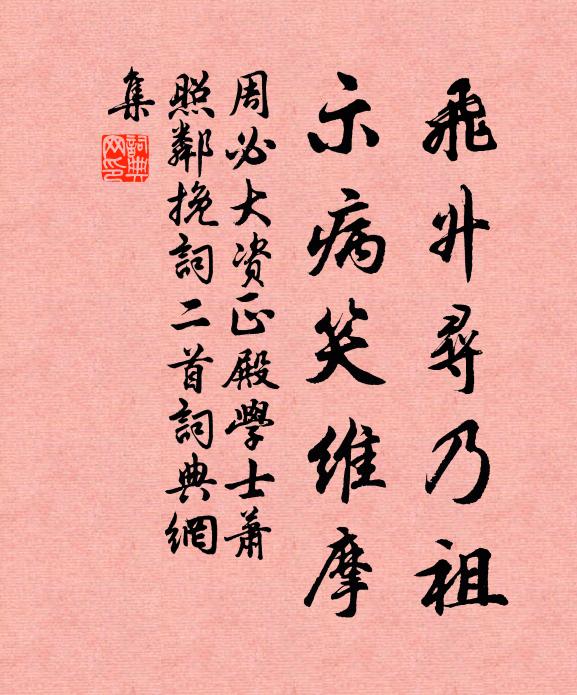 飛升尋乃祖
示病笑維摩
周必大資正殿學士蕭
照鄰挽詞二首詞典網
集
詞典網印